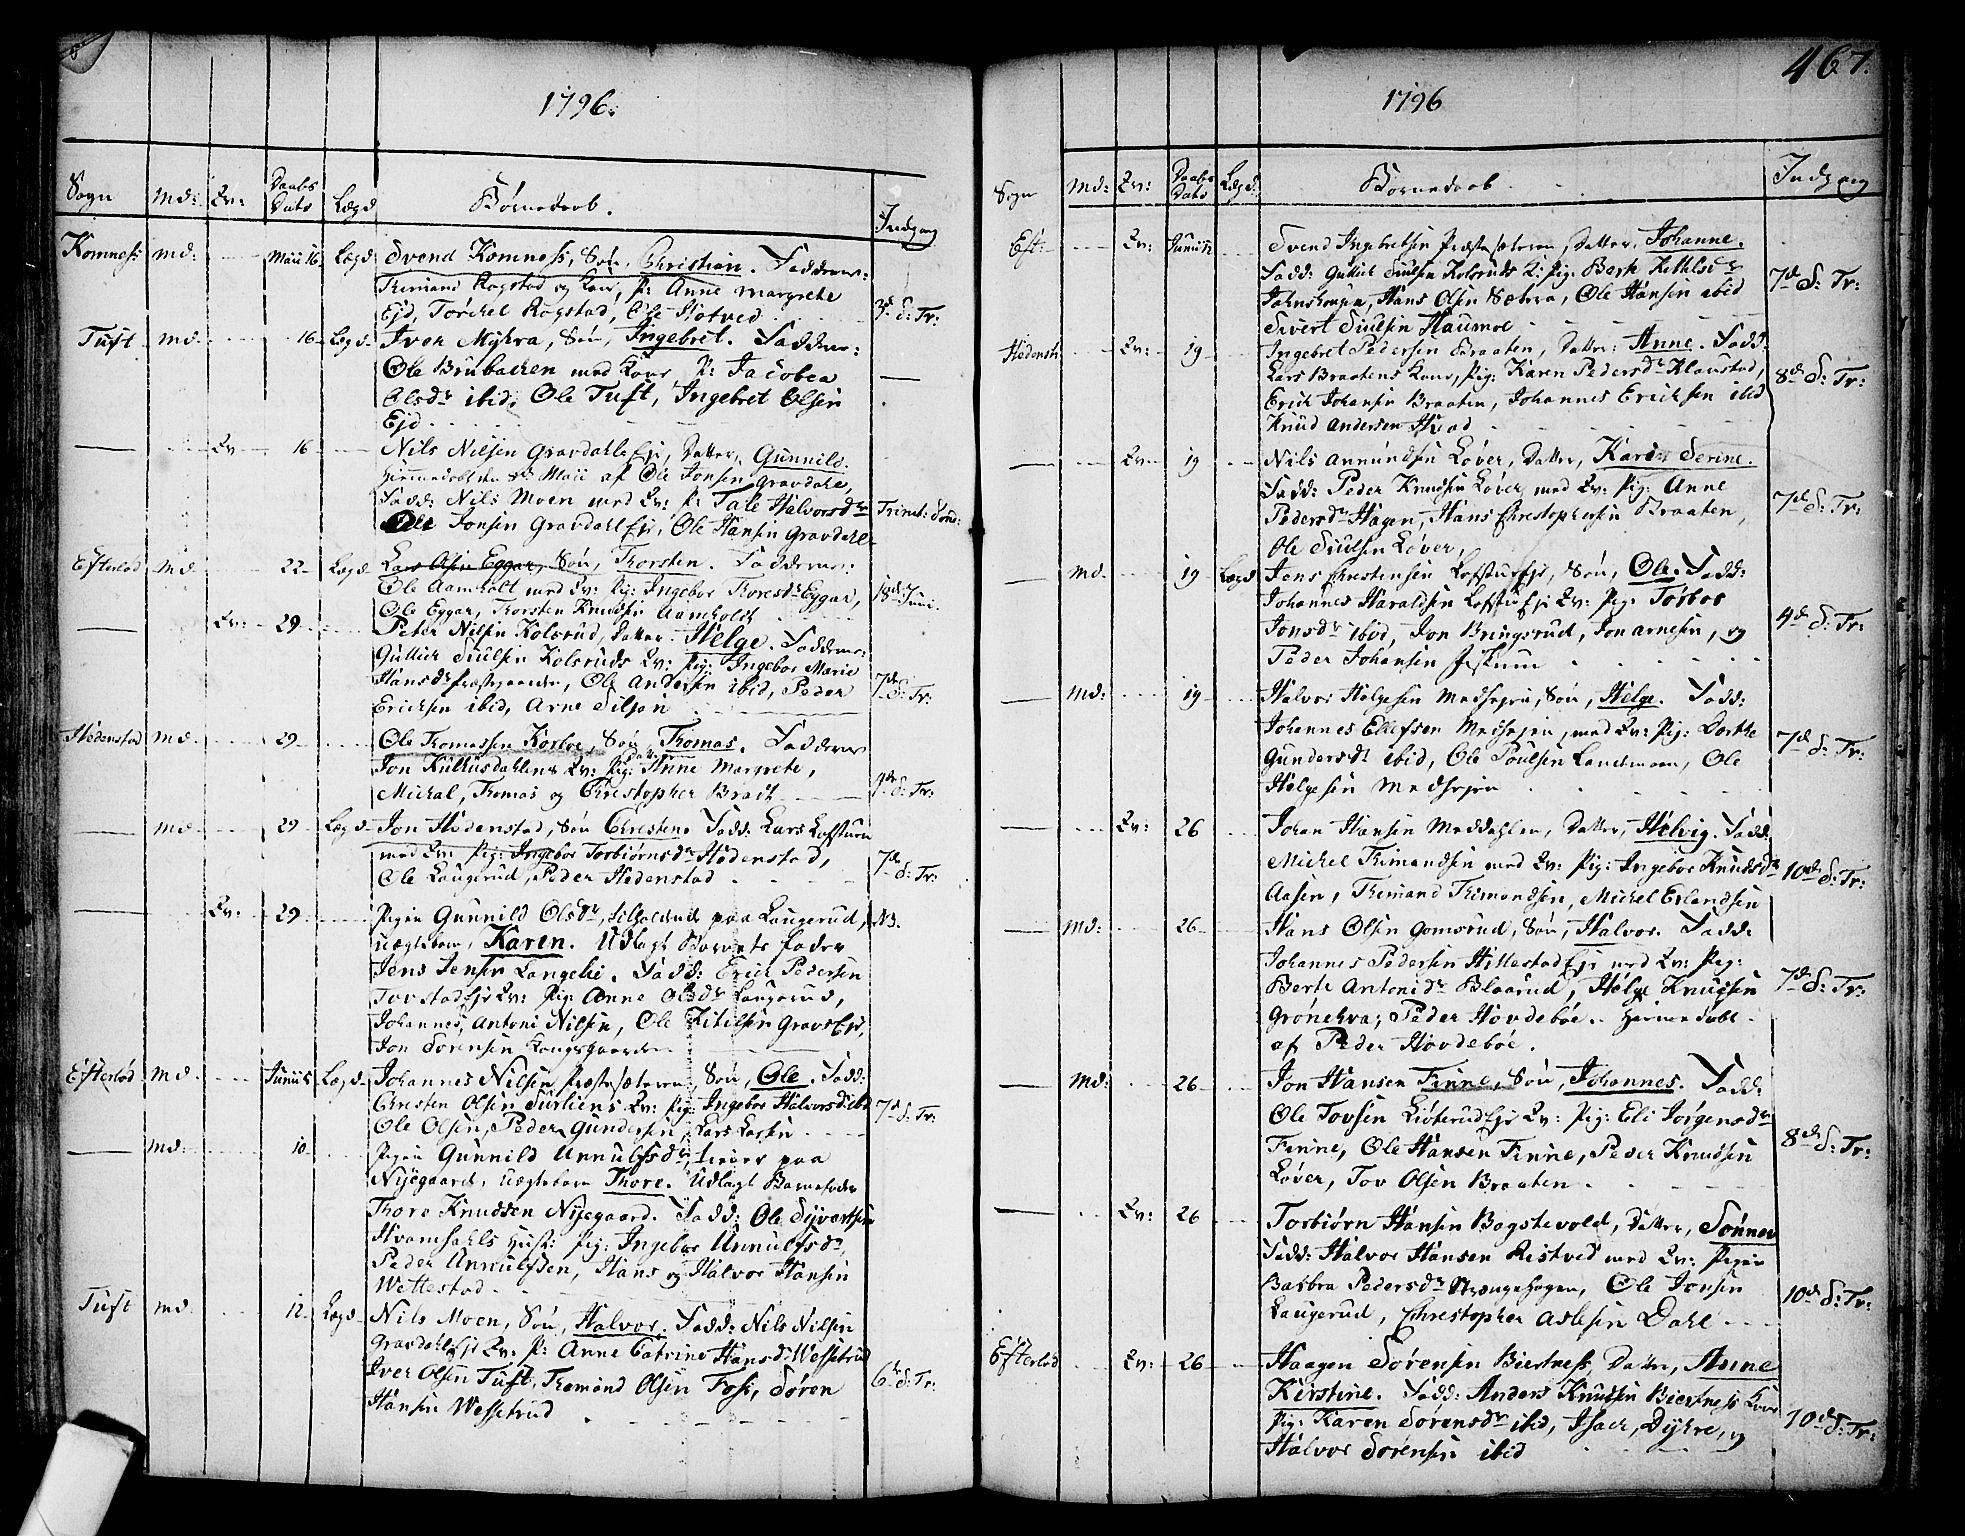 1796.
Sogn Md: Qv: Daabs Dato Lægd Børnedaab. Indgang
Komness Md: Maii 16 Lægd Svend Komness, Søn, Christian. Fadderne:
Trimand Rogstad og Kone, P: Anne Margrete
Ejd, Torchel Rogstad, Ole Hotved 3d S: Tr:
Tuft Md. 16 Lægd Iver Myhra, Søn, Ingebret. Fadderne:
Ole Brubachen med Kone P: Jacobea
Olsdr ibid, Ole Tuft, Ingebret Olsen
Ejd
Qv 16 Nils Nilsen Gravdahl Ejr, Datter, Gunnild.
Hiemmedøbt den Maii af Ole Jonsen Gravdahl,
Fadd: Nils Moen med Qv: P: Tale Halvorsdr
Ole Jonsen Gravdahl Ejr, Ole Hansen Gravdahl Trinit: Sønd:
Efterlød Md 22 Lægd Lars Olsen Eggar, Søn, Thorsten. Fadderne:
Ole Aamholt med Qv: Pig: Ingebor Thoresdr Eggar,
Ole Eggar, Thorsten Knudsen Aamholdt 18d Juni.
Qv: 29 Peter Nilsen Kolsrud, Datter, Helge. Fadderne:
Gullich Siulsen Kolsruds Qv: Pig: Ingebor Marie
Hansdr Præstegaarden, Ole Andersen ibid, Peder
Ericksen ibid, Arne Siljan 7d S: Tr:
Hedenstad Md. 29 Ole Thomassen Korboe, Søn Thomas. Fadderne
Jon Kulkusdahlens Qv: Pig: Anne Margrete,
Michal, Thomas og Christopher Bradt S: Tr:
Md 29 Lægd Jon Hedenstad, Søn Christen. Fadd: Lars Lofthuen
med Qv: Pig: Ingebor Torbiørnsdr Hedenstad,
Ole Laugerud, Peder Hedenstad 7d S: Tr:
Qv: 29 Pigen Gunnild Olsdr, tilholdende paa Laugerud, NB.
uægtebarn, Karen. Udlagt Barnets Fader
Jens Jensen Langelie. Fadd: Erich Pedersen
Tovstad Ejr Qv: Pig: Anne Olsdr Laugerud,
Johannes Antoni Nilsen, Ole Kitilsen Gravs Ejr,
Jon Sørensen Kongsgaarden
Efterlød Md. Junii 5 Lægd Johannes Nilsen Præstesæteren, Søn, Ole. Fadd:
Christen Olsen Surliens Qv: Pig: Ingebor Halvorsdr ibid
Ole Olsen, Peder Gundersen, Lars Larsen 7d S: Tr:
Md: 10 Pigen Gunnild Unnulfsdr, tiener paa
Nyegaard, uægtebarn Thore. Udlagt Barnefader
Thore Knudsen Nyegaard. Fadd: Ole Syvertsen
Hvamsahls Hust: Pig: Ingebor Unnulfsdr,
Peder Unnulfsen, Hans og Halvor Hansen
Wettestad
Tuft Md 12 Lægd Nils Moen, Søn, Halvor. Fadd: Nils Nilsen
Gravdahl Ejr Qv: P: Anne Catrine Hansdr Wessetrud
Iver Olsen Tuft, Tromond Olsen Foss, Søren
Hansen Wessetrud 6te S: Tr:
467.
1796
Sogn Md: Qv: Daabs Dato Lægd: Børnedaab Indgang
Eft: Qv: Junii 12 Svend Ingebretsen Præstesæteren, Datter, Johanne.
Fadd: Gullich Siulsen Kolsruds K: Pig: Berte Kethilsdr
Jahnskougen, Hans Olsen Sætera, Ole Hansen ibid
Sivert Siulsen Haumoe 7d S: Tr:
Hedenst: Qv: 19 Ingebret Pedersen Braaten, Datter: Anne. Fadd:
Lars Braatens Kone, Pig: Karen Pedersdr Klaustad,
Erich Johansen Braaten, Johannes Ericksen ibid
Knud Andersen 8d S: Tr:
Qv 19 Nils Anmundsen Løver, Datter, Karen Serine.
Fadd: Peder Knudsen Løver med Qv: Pig: Anne
Pedersdr Hagen, Hans Christophersen Braaten,
Ole Siulsen Løver, 7d S: Tr:
Md 19 Lægd Jens Christensen Lofthus Ejr, Søn, Ole. Fadd:
Johannes Haraldsen Lofthus Ejr Qv: Pig: Torbor
Jonsdr ibid, Jon Bringsrud, Jon Arnesen, og
Peder Johansen Jestum 4d S: Tr:
Md: 19 Halvor Helgesen Medhejen, Søn, Helge. Fadd:
Johannes Ellefsen Medhejen, med Qv: Pig: Dorthe
Gundersdr ibid, Ole Poulsen Landmoen, Ole
Helgesen Medhejen 7d S: Tr:
Qv: 26 Johan Hansen Meddahlen, Datter, Helvig. Fadd:
Michel Trimandsen med Qv: Pig: Ingebor Knudsdr
Aasen, Trimand Trimandsen, Michel Erlandsen 10d S: Tr:
Md: 26 Hans Olsen Gomsrud, Søn, Halvor. Fadd:
Johannes Pedersen Hillestad Ejr med Qv: Pig:
Berte Antonidr Blaarud, Helge Knudsen
Grønekva, Peder Hovdebøe. Hiemmedøbt
af Peder Hovdebøe. 7d S: Tr:
Md: 26 Jon Hansen Finne, Søn, Johannes. Fadd:
Ole Tovsen Liøterud Ejr Qv: Pig: Eli Jørgensdr
Finne, Ole Hansen Finne, Peder Knudsen
Løver, Tov Olsen Braaten 8d S: Tr:
Qv: 26 Torbiørn Hansen Bogstevold, Datter, Sønnev
Fadd: Halvor Hansen Ristved med Qv: Pigen
Barbra Pedersdr Ole Jonsen
Laugerud, Christopher Aslesen Dahl 10d S: Tr:
Efterlød Qv: 26 Haagen Sørensen Biertness, Datter, Anne
Kirstine. Fadd: Anders Knudsen Biertness Kone
Pig: Karen Sørensdr ibid, Isach Dyhre, og
Halvor Sørensen ibid 10d S: Tr: